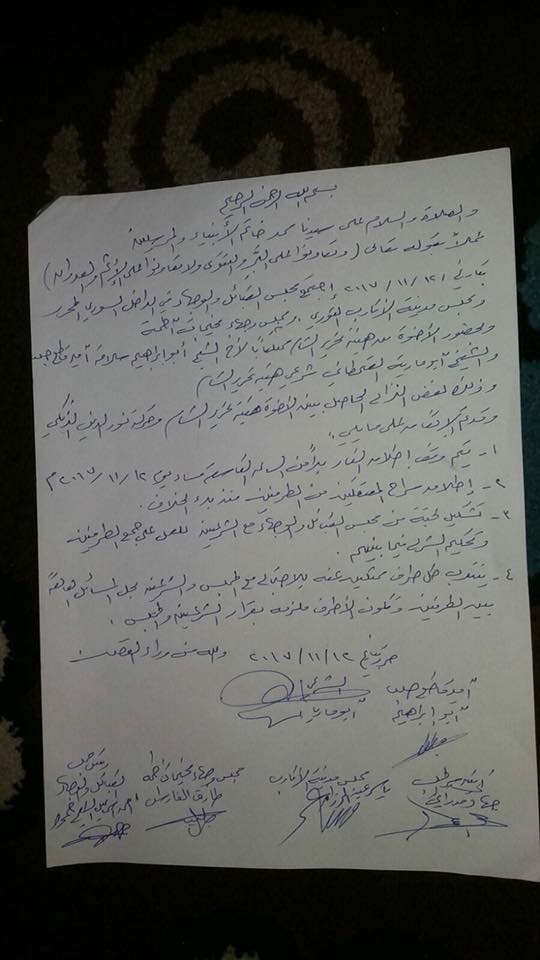 بسم الله الرحمن الرحيم
والصلاة والسلام على سيدنا محمد خاتم الأنبياء والمرسلين
عملاً بقوله تعالى (وتعاونوا على البر والتقوى ولا تعاونوا على الإثم والعدوان)
بتاريخ ٢٠١٧/١١/١٢ اجتمع مجلس القبائل والوجهاء في الداخل السوري المحرر
ومجلس مدينة الأتارب الثوري ومجلس وجهاء مخيمات أطمة
وبحضور الأخوة من هيئة تحرير الشام ممثلاً بالأخ الشيخ أبو ابراهيم سلامة أمير قاطع حلب
والشيخ أبو مارية القحطاني شرعي هيئة تحرير الشام
وذلك لفض النزاع الحاصل بين الأخوة هيئة تحرير الشام وحركة نور الدين الزنكي
وقد تم الاتفاق على ما يلي :
١- يتم وقف إطلاق النار بدأ من الساعة مساء يوم ٢٠١٧/١١/١٢ م
٢- إطلاق سراح المعتقلين من الطرفين منذ بدء الخلاف .
٣- تشكيل لجنة من مجلس القبائل والوجهاء مع الشرعيين للعمل على جمع الطرفين
وتحكيم الشرع فيما بينهم .
٤- ينتدب كل طرف ممثلين عنه للاجتماع مع المجلس والشرعيين لحل المسائل العالقة
بين الطرفين وتكون الأطراف ملزمة بقرار الشرعيين والمجلس .
حرر بتاريخ ٢٠١٧/١١/١٢ والله من وراء القصد
أمير قاطع حلب
أبو ابراهيم
الشيخ
أبو مارية
مجلس مدينة الأتارب
مجلس وجهاء مخيمات أطمة
طارق الفارس
رئيس مجلس
القبائل والوجهاء